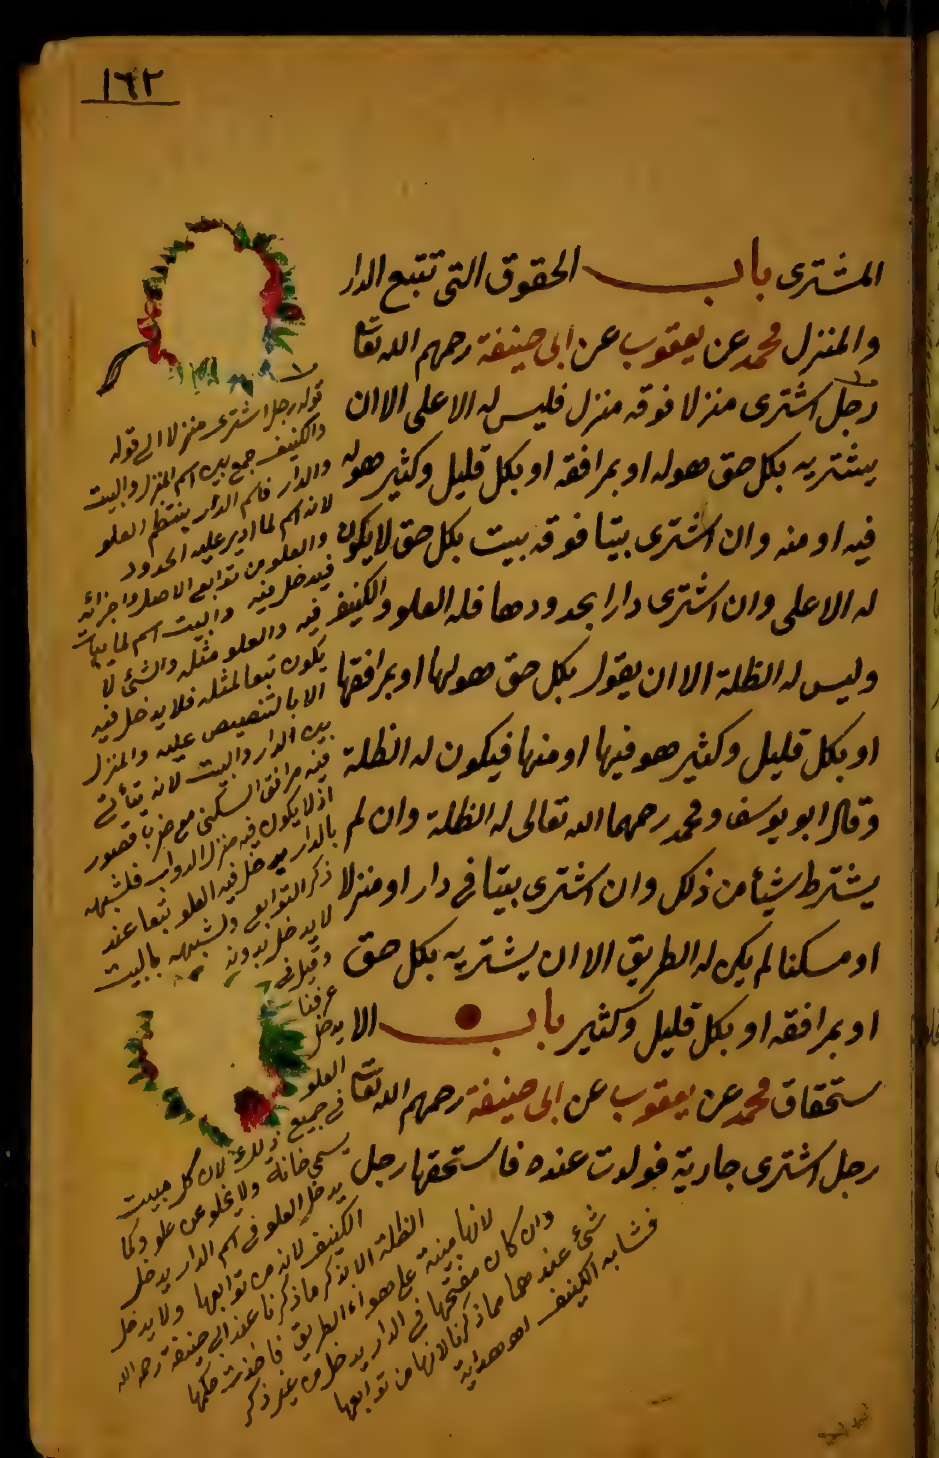 ١٦٢
المشترى باب الحقوق التى تتبع الدار
والمنزل محمد عن يعقوب عن ابى حنيفة رحمهم الله تعا
رجل اشترى منزلا فوقه منزل فليس له الاعلى الا ان
يشتريه بكل حق هوله او بمرافقه او بكل قليل وكثير هوله
فيه او منه وان اشترى بيتا فوقه بيت بكل حق لا يكون
له الاعلى وان اشترى دارا بحدودها فله العلو والكنيف
وليس له الظلة الا ان يقول بكل حق هولها او بمرافقها
او بكل قليل وكثير هو فيها او منها فيكون له الظلة
وقال ابو يوسف ومحمد رحمهما الله تعالى له الظلة وان لم
يشترط شيأ من ذلك وان اشترى بيتا فى دار او منزلا
او مسكنا لم يكن له الطريق الا ان يشتريه بكل حق
او بمرافقه او بكل قليل وكثير باب الا
ستحقاق محمد عن يعقوب عن ابى حنيفة رحمهم الله تعا
رجل اشترى جارية فولدت عنده فاستحقها رجل
قوله رجل اشترى منزلا الى قوله
والكنيف جمع بين اسم المنزل والبيت
والدار فاسم الدار ينتظم العلو
لانه اسم لما ادير عليه الحدود
والعلو من توابع الاصل واجزائه
فيدخل فيه والبيت اسم لما يبات
فيه والعلو مثله والشئ لا
يكون تبعا لمثله فلا يدخل فيه
الا بالتنصيص عليه والمنزل
بين الدار والبيت لانه يتأتى
فيه مرافق السكنى مع ضرب قصور
اذ لا يكون فيه منزل الدواب فلشبهه
بالدار يدخل فيه العلو تبعا عند
ذكر التوابع ولشبهه بالبيت
لا يدخل بدونه
وقيل فى
عرفنا
يدخل
العلو
فى جميع ذلك لان كل بيت
يسمى خانة ولا يخلو عن علو وكما
يدخل العلو فى اسم الدار يدخل
الكنيف لانه من توابعها ولا يدخل
الظلة الا بذكر ما ذكرنا عند ابى حنيفة رحمه الله
لانها مبنية على هواء الطريق فاخذت حكمها
وان كان مفتحها فى الدار يدخل من غير ذكر
شئ عندهما مما ذكرنا لانها من توابعها
فشابه الكنيف اه هداية